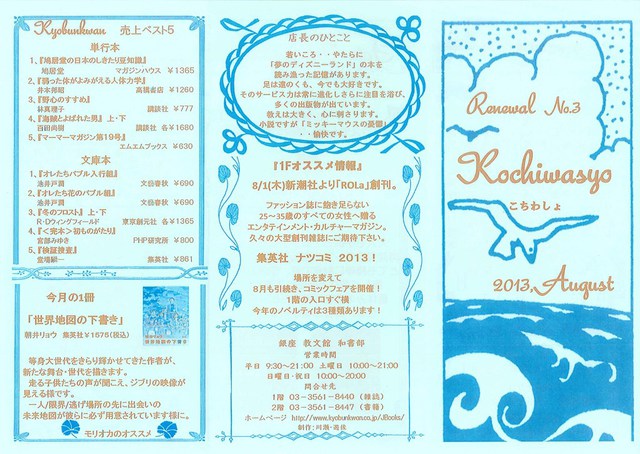 Kyobunkwan 売上ベスト5
単行本
1,『鳩居堂の日本のしきたり豆知識』
鳩居堂 マガジンハウス ¥1365
2,『弱った体がよみがえる人体力学』
井本邦昭 高橋書店 ¥1260
3,『野心のすすめ』
林真理子 講談社 ¥777
4,『海賊とよばれた男』上・下
百田尚樹 講談社 各¥1680
5,『マーマーマガジン第19号』
エムエムブックス ¥630
文庫本
1,『オレたちバブル入行組』
池井戸潤 文藝春秋 ¥690
2,『オレたち花のバブル組』
池井戸潤 文藝春秋 ¥690
3,『冬のフロスト』上・下
R・Dウィングフィールド 東京創元社 各¥1365
4,『<完本>初ものがたり』
宮部みゆき PHP研究所 ¥800
5,『検証捜査』
堂場瞬一 集英社 ¥861
今月の1冊
「世界地図の下書き」
朝井リョウ 集英社 ¥1575(税込)
世界地図の下書き
等身大世代をきらり輝かせてきた作者が、
新たな舞台・世代を描きます。
走る子供たちの声が聞こえ、ジブリの映像が
見える様です。
一人/限界/逃げ場所の先に出会いの
未来地図が彼らに必ず用意されています様に。
モリオカのオススメ
店長のひとこと
若いころ・・やたらに
「夢のディズニーランド」の本を
読み漁った記憶があります。
足は遠のくも、今でも大好きです。
そのサービス力は常に進化しさらに注目を浴び、
多くの出版物が出ています。
教えは大きく、心に刺さります。
小説ですが「ミッキーマウスの憂鬱」
・・愉快です。
『1Fオススメ情報』
8/1(木)新潮社より「ROLa」創刊。
ファッション誌に飽き足らない
25~35歳のすべての女性へ贈る
エンタテインメント・カルチャーマガジン。
久々の大型創刊雑誌にご期待下さい。
集英社 ナツコミ 2013!
場所を変えて
8月も引続き、コミックフェアを開催!
1階の入口すぐ横
今年のノベルティは3種類あります!
銀座 教文館 和書部
営業時間
平日 9:30~21:00 土曜日 10:00~21:00
日曜日・祝日 10:00~20:00
問合せ先
1階 03-3561-8440(雑誌)
2階 03-3561-8447(書籍)
ホームページ http://www.kyobunkwan.co.jp/JBooks/
Renewal No.3
Kochiwasyo
こちわしょ
2013,August